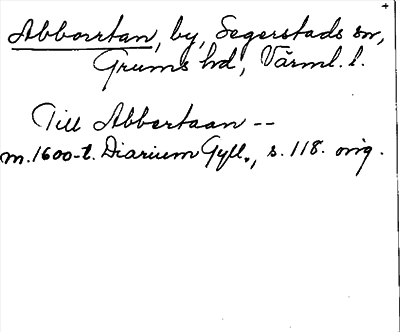 Abborrtan, by, Segerstads sn,
Grums hd, Värml. l.
Till Abbortaan --
m. 1600-t. Diarium Gyll., s. 118. orig.